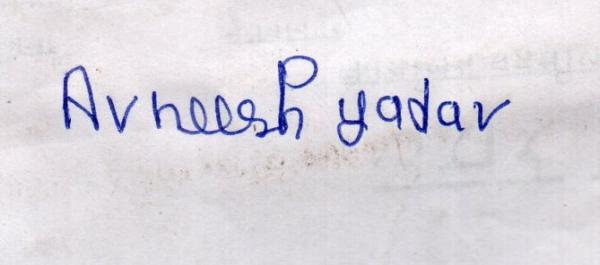 Avneesh yadav